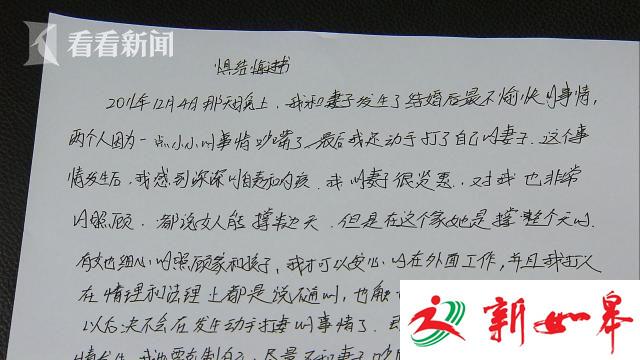 看看新闻
具结悔过书
2011年12月4日那天晚上,我和妻子发生了结婚后最不愉快的事情,
两个人因为一点小小的事情吵嘴了,最后我还动手打了自己的妻子.这个事
情发生后,我感到深深的自责和内疚.我的妻子很贤惠,对我也非常
的照顾.都说女人能撑半边天,但是在这个家她是撑整个天的.
有她细心的照顾家和孩子,我才可以安心的在外面工作,并且我打人
在情理和法理上都是说不通的,也触
以后决不会在发生动手打妻的事情了.
情发生,我也要克制自己,尽量不和妻子吵
新如皋